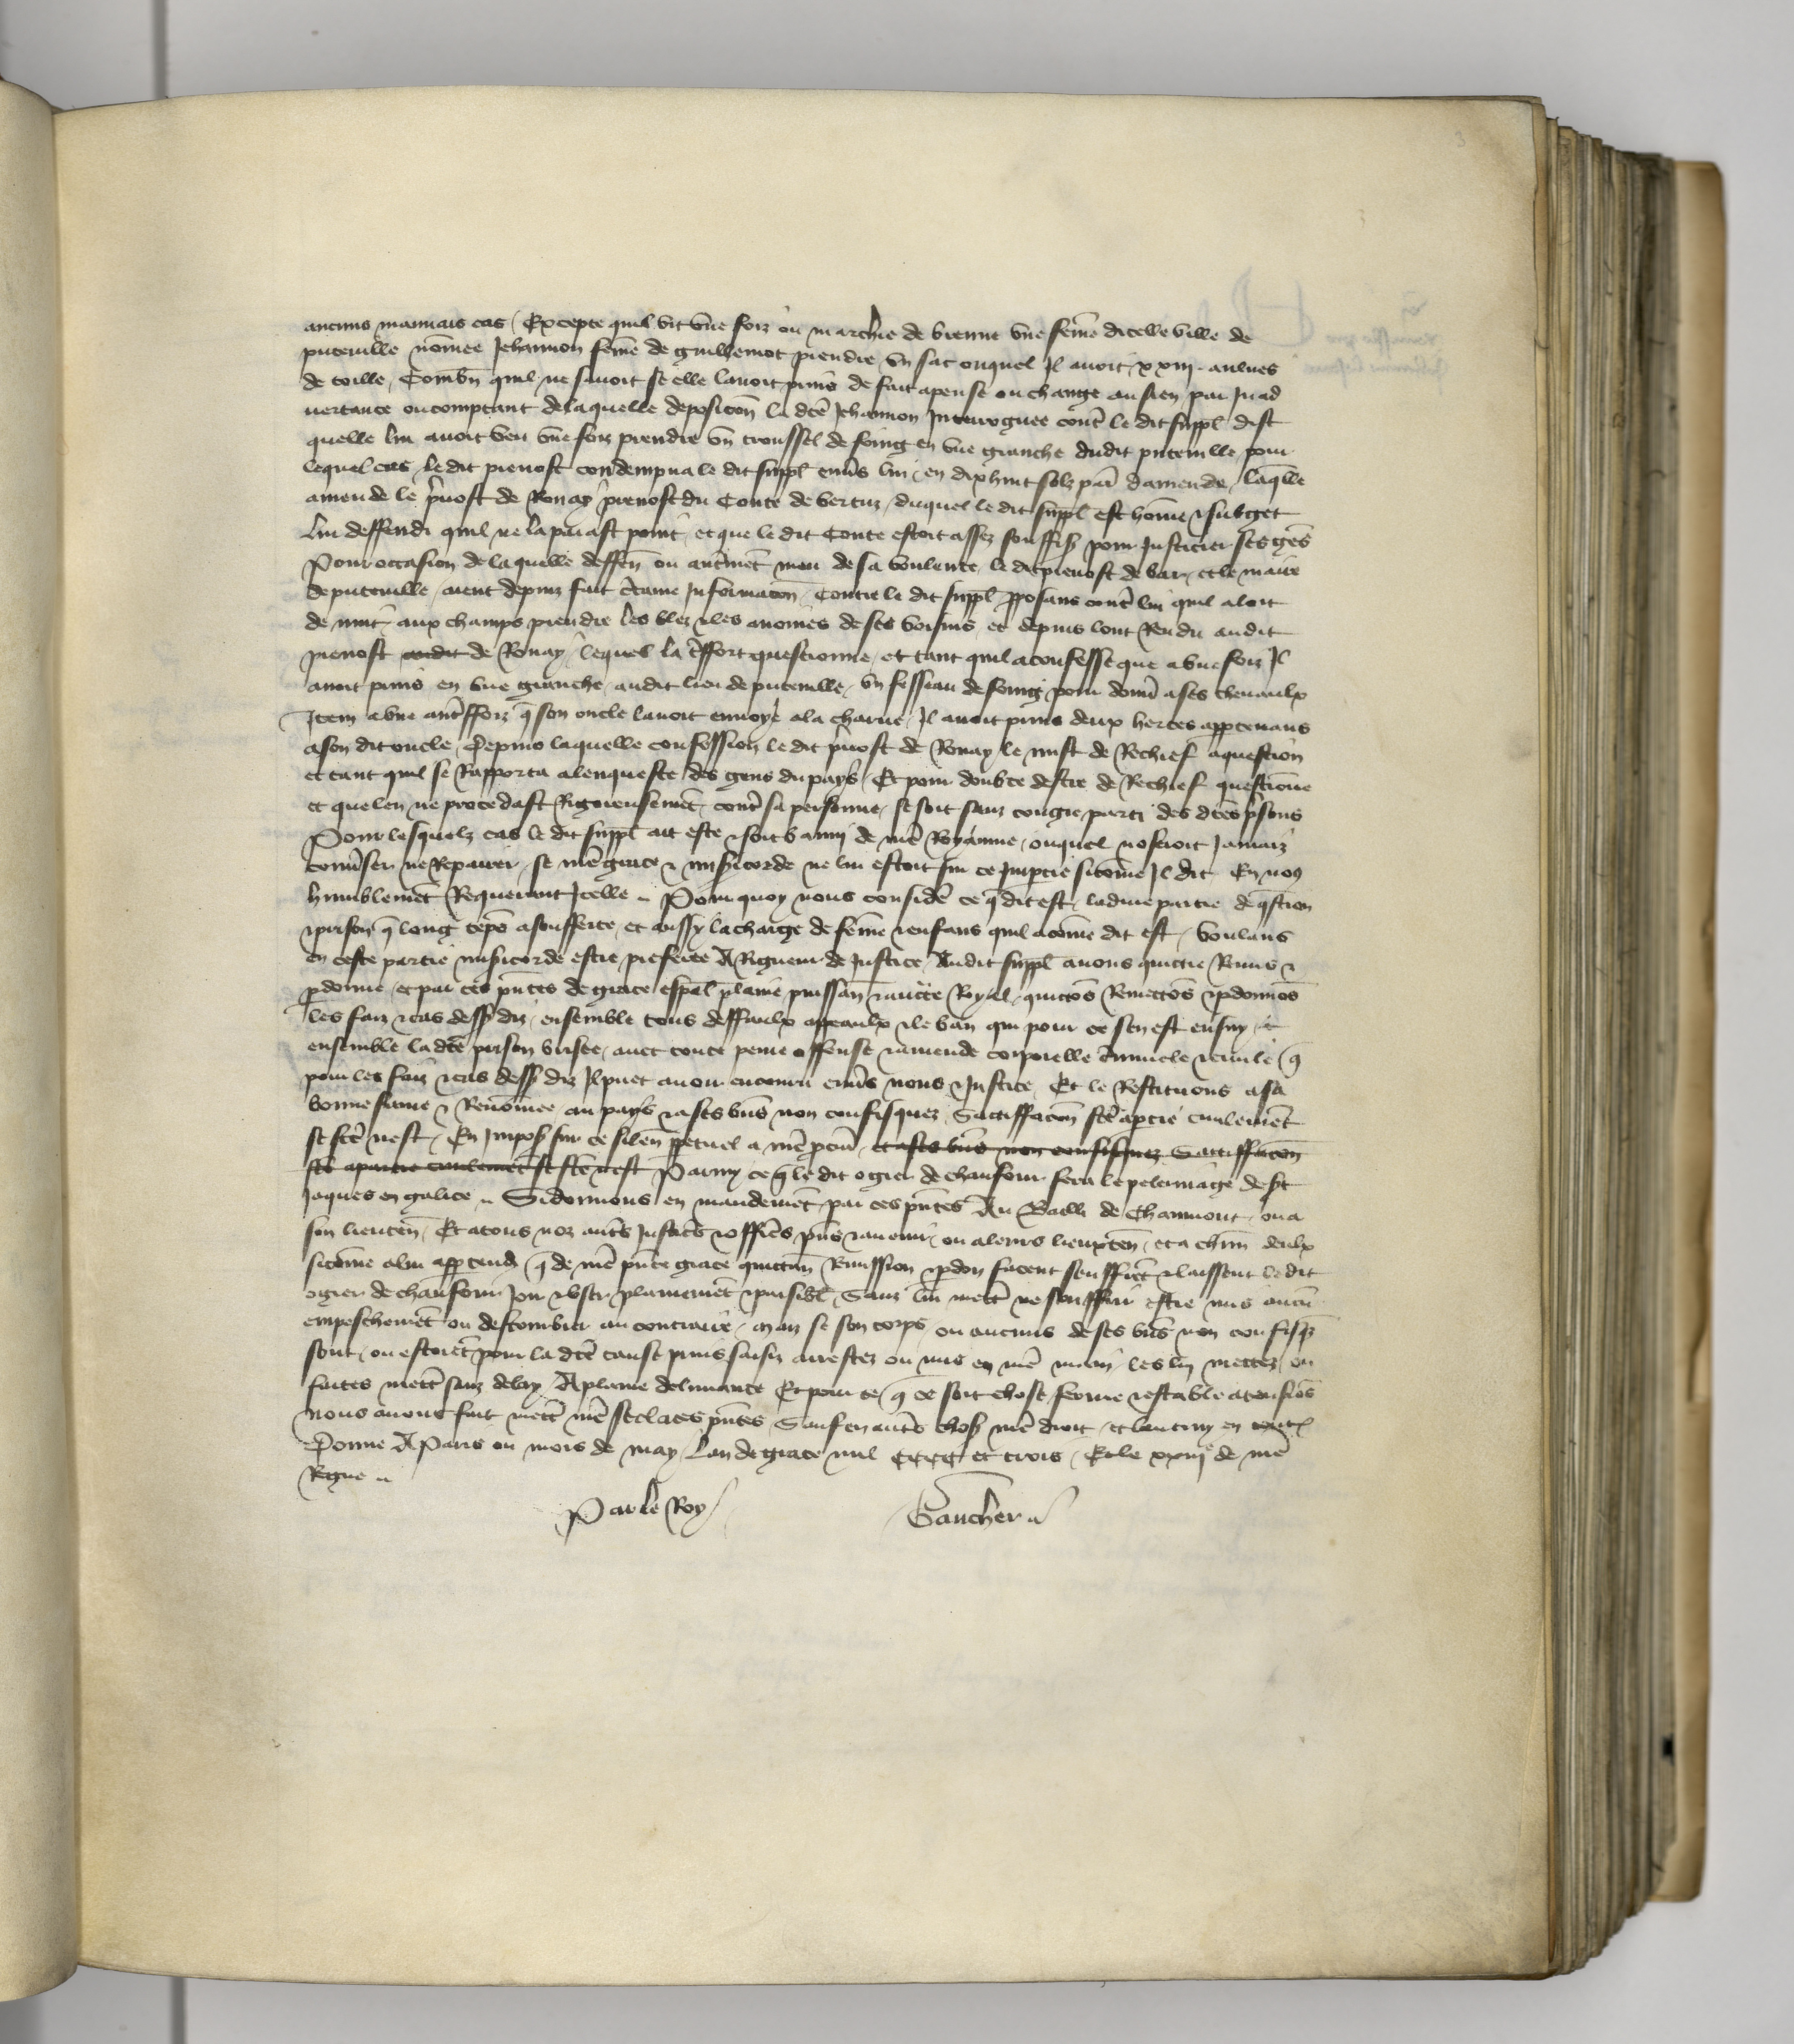 aucuns mauvais cas / Excepte quil vit une foiz ou marchie de brenne une feme dicelle ville de
puteville nomee Jehannon feme de guillemot prendre un sac ouquel Il avoit xxiiij aulnes
de toille / Combn quil ne savoit se elle lavoit prins de fait apense ou change au sien par Inad
vertance ou comptant de laquelle deposicon la dce Jehannon Interroguee contre le dit suppl dist
quelle lui avoit veu une foiz prendre un troussel de foing en une granche dudit puteville pour
lequel cas le dit prevost condempna le dit suppl envers lui en dix huit solz par damende / laqlle
amende le pvost de Ronay prevost du Conte de vertuz / duquel le dit suppl est home & subget
lui deffendi quil ne la paiast point et que le dit Conte estoit assez souffis pour Justicier ses gens
Pour occasion de laquelle deffen ou autrement meu de sa voulente le dit prevost de bar et le maire
de puteville aient depuis fait ctaine Informacon Contre le dit suppl pposans contre lui quil aloit
de nuit aux champs prendre les blez & les avoines de ses voisins et depuis lont Rendu audit
prevost audit de Ronay lequel la tresfort questionne et tant quil a confesse que a une foiz Il
avoit prins en une granche audit lieu de puteville un fessiau de foing pour donner a ses chevaulx
Item a une autre ffoiz q son oncle lavoit envoye a la charue Il avoit prins deux herces apptenans
a son dit oncle / Depuis laquelle confession le dit pvost de Ronay le mist de Rechief a question
et tant quil se Rapporta a lenqueste des gens du pays / Et pour doubte destre de Rechief questione
et que len ne procedast Rigoreusement contre sa personne se soit sanz congie parti des dces prisons
Pour lesquelz cas le dit suppl ait este & soit banny de nre Royaume / ouquel noseroit Jamaiz
converser ne Repairer se nre grace & misericorde ne lui estoit sur ce Impartie sicome Il dit En nous
humblement Requerant Icelle Pourquoy nous consider ce q dit est la dure partie de qstion
& prison q long temps a soufferte et aussy la charge de feme & enfans quil a come dit est voulans
en ceste partie misericorde estre preferee A Rigueur de Justice Audit suppl avons quictie Remis &
pdonne et par ces pntes de grace espal plaine puissan & aucte Royal quictos Remettos & pdonnos
les faiz & cas dess diz ensemble tous deffaulx appeaulx & le ban qui pour ce sen est ensuy et
ensemble la dce prison brisee avec toute peine offense & amende corporelle criminele & civile q
pour les faiz & cas dess diz Il puet avoir encouru envers nous & Justice Et le Restituons a sa
bonne fame & Renomee au pays & a ses bns non confisquez Satisfacon fcte a ptie civilement
se fcte nest / En Impos sur ce silen ppetuel a nre pcur et a ses bns non confisquez Satisffacon
fcte a partie civilement se fcte nest Parmy ce q le dit ogier de chaufour fera le pelerinage de st
Jaques en galice Si donnons en mandement par ces pntes Au Bailli de Chaumont ou a
son lieuten Et a tous noz autres Justiciers & officiers pns & avenir ou a leurs lieuxten et a chun deulx
sicome a lui apptendra q de nre pnte grace quictan Remission & pdon facent seuffret & laissent le dit
ogier de chaufour Joir & user plainement & paisible Sanz lui mettre ne souffrir estre mis aucun
empeschement ou destourbier au contraire / maiz se son corps ou aucuns de ses bns non confisqz
sont ou estoiet pour la dce cause prins saisiz arrestez ou mis en nre main les lui mettez ou
faites mettre sanz delay A plaine delivrance Et pour ce q ce soit chose ferme & estable a tousios
nous avons fait mettre nre scel a ces pntes Sauf en autres choses nre droit et lautruy en toutes
Donne A Paris ou mois de may Lan de grace mil CCCC et trois Et le xxiije de nre
Regne
Par le Roy
Gaucher